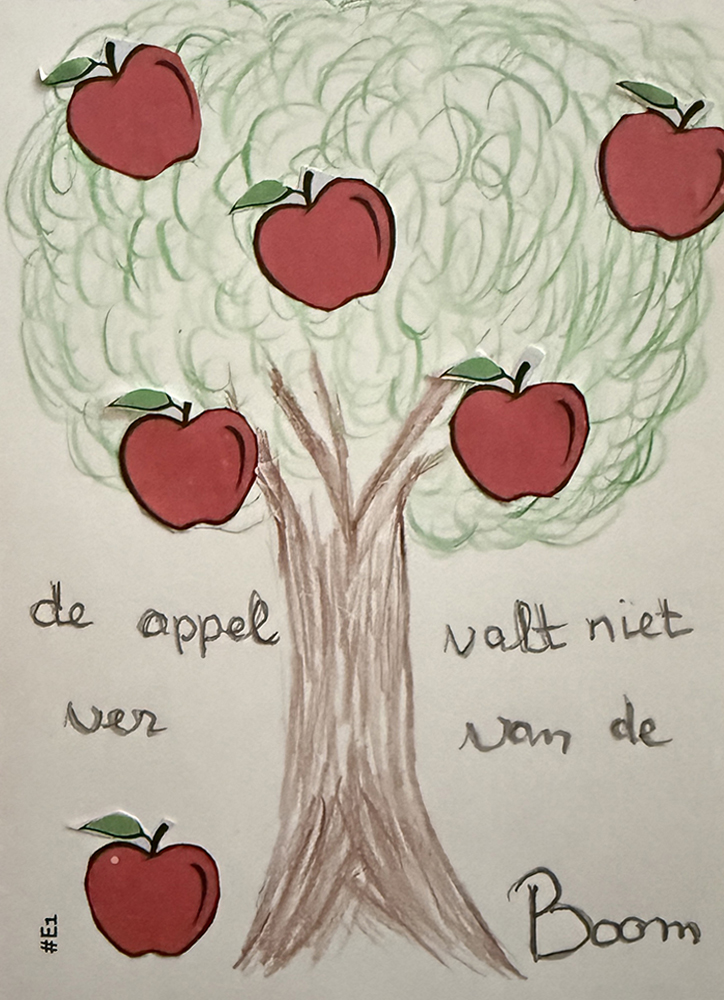 de appel valt niet
ver van de
Boom
#E1